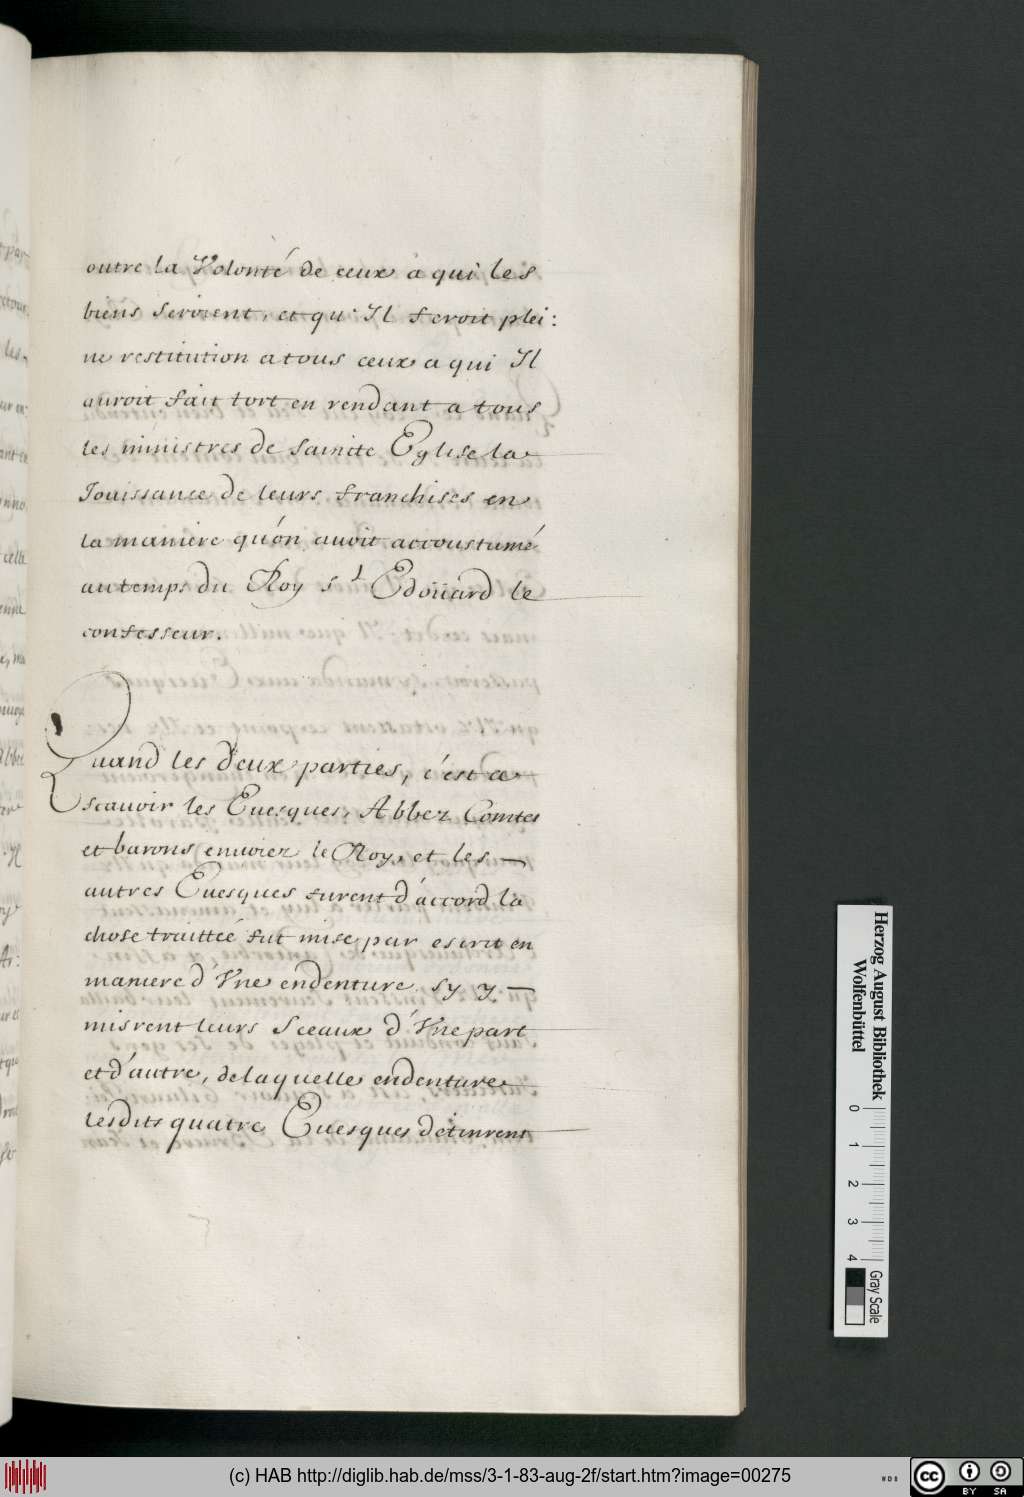 outre la Volonté de ceux a qui les
biens seroient, et qu'Il feroit plei:
ne restitution a tous ceux a qui Il
auroit fait tort en rendant a tous
les ministres de saincte Eglise la
Jouissance de leurs franchises en
la maniere qu'on avoit accoustumé
au temps du Roy st Edoüard le
confesseur.
Quand les deux parties, c'est a
scavoir les Evesques, Abbez Comtes
et barons envoiez le Roy, et les —
autres Evesques furent d'accord la
chose traittée fut mise par escrit en
maniere d'Vne endenture sy y —
misrent leurs Sceaux d'Vne part
et d'autre, de laquelle endenture
lesdits quatre Evesques detinrent
Herzog August Bibliothek
Wolfenbüttel
0 1 2 3 4
Gray Scale
(c) HAB http://diglib.hab.de/mss/3-1-83-aug-2f/start.htm?image=00275
WDB
cc BY SA